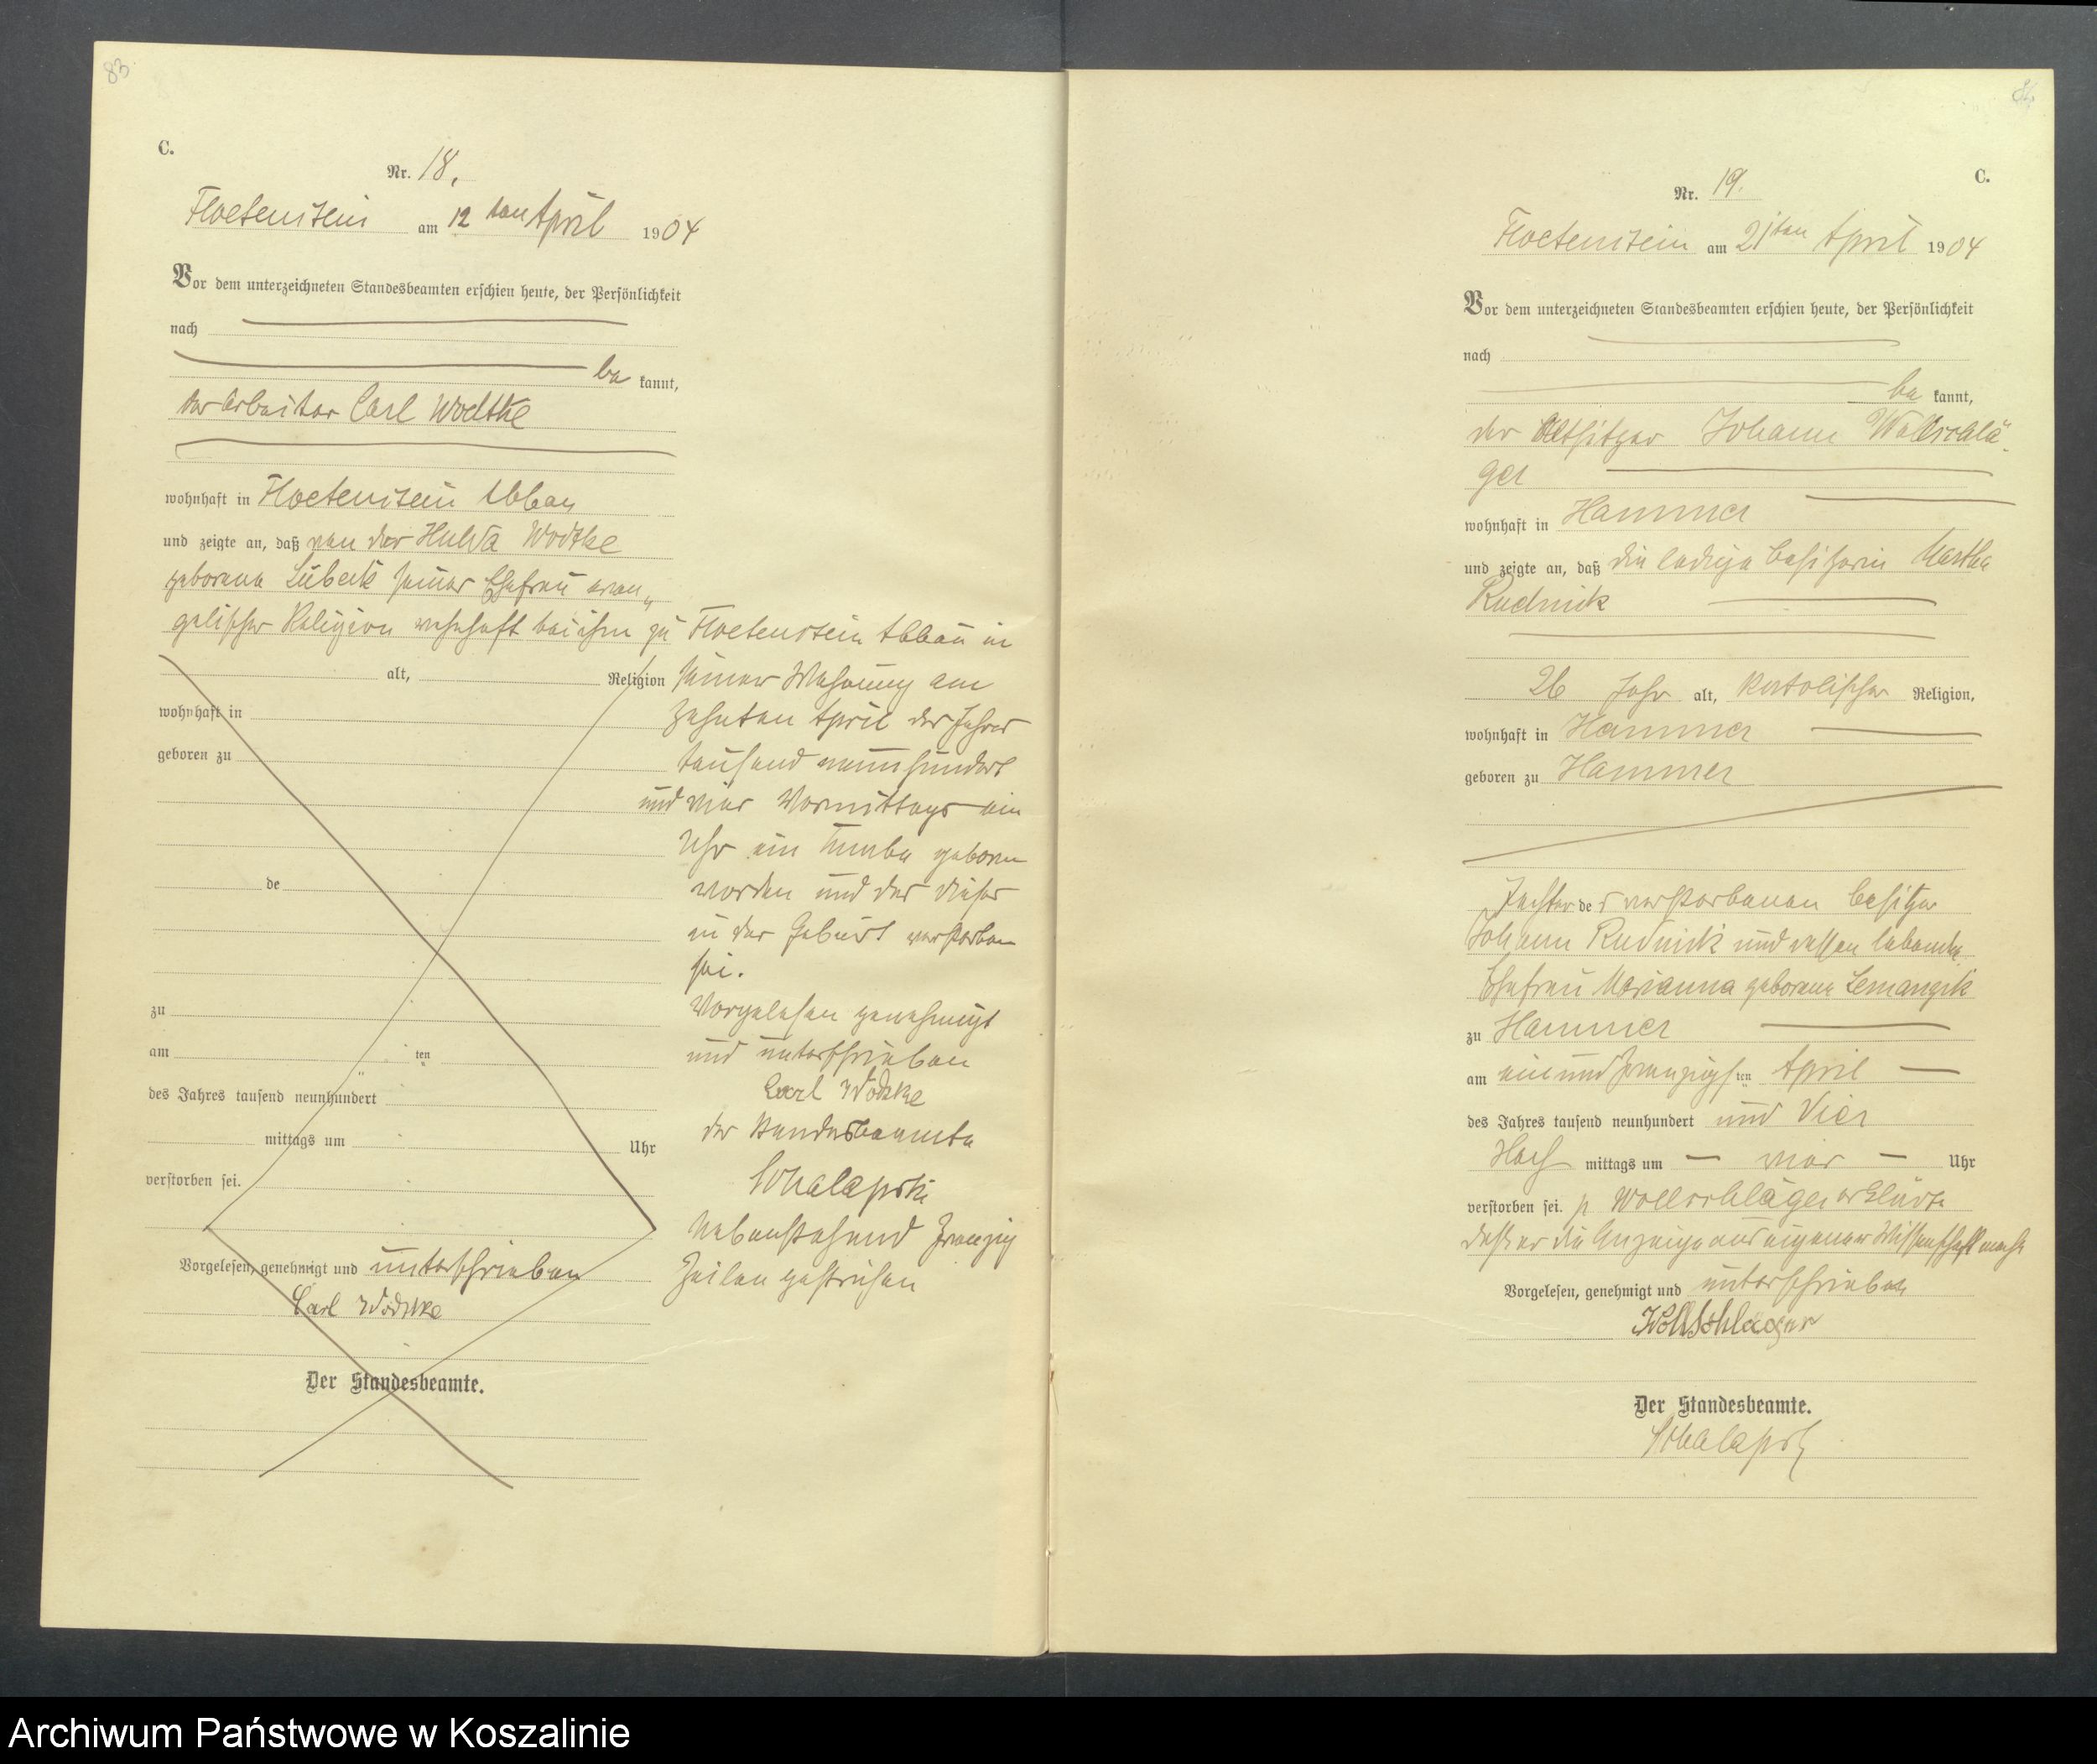 83
C.
Nr. 18.
Floetenstein am 12 ten April 1904
Vor dem unterzeichneten Standesbeamten erschien heute, der Persönlichkeit
nach
be kannt,
der Arbeiter Carl Wodtke
wohnhaft in Floetenstein Abbau
und zeigte an, daß von der Wodtke
geborene Lübeck seiner Ehefrau evan„
gelischer Religion wohnhaft bei ihm zu Floetenstein Abbau in
alt, Religion seiner Wohnung am
wohnhaft in zehnten April des Jahres
geboren zu tausend neunhundert
und vier Vormittags ein
Uhr ein Knabe geboren
de worden und das dieser
in der Geburt verstorben
sei.
zu Vorgelesen genehmigt
am ten und unterschrieben
des Jahres tausend neunhundert Carl Wodtke
mittags um Uhr der Standesbeamte
verstorben sei.
Nebenstehend zwanzig
Vorgelesen, genehmigt und unterschrieben Zeilen gestrichen
Carl Wodtke
Der Standesbeamte.
C.
Nr. 19.
Floetenstein am 21ten April 1904
Vor dem unterzeichneten Standesbeamten erschien heute, der Persönlichkeit
nach
be kannt,
der Altsitzer Johann Wollschlä
ger
wohnhaft in Hammer
und zeigte an, daß die ledige Besitzerin Martha
Rudnick
26 Jahr alt, katolischer Religion,
wohnhaft in Hammer
geboren zu Hammer
Tochter des verstorbenen Besitzer
Johann Rudnick und dessen lebende
Ehefrau Marianna geborene
zu Hammer
am ein und zwanzigsten April
des Jahres tausend neunhundert und Vier
Nach mittags um vier Uhr
verstorben sei. p Wollschläger erklärte
daß er die Anzeige aus eigener Wissenschaft mache
Vorgelesen, genehmigt und unterschrieben
Wollschläger
Der Standesbeamte.
Archiwum Państwowe w Koszalinie